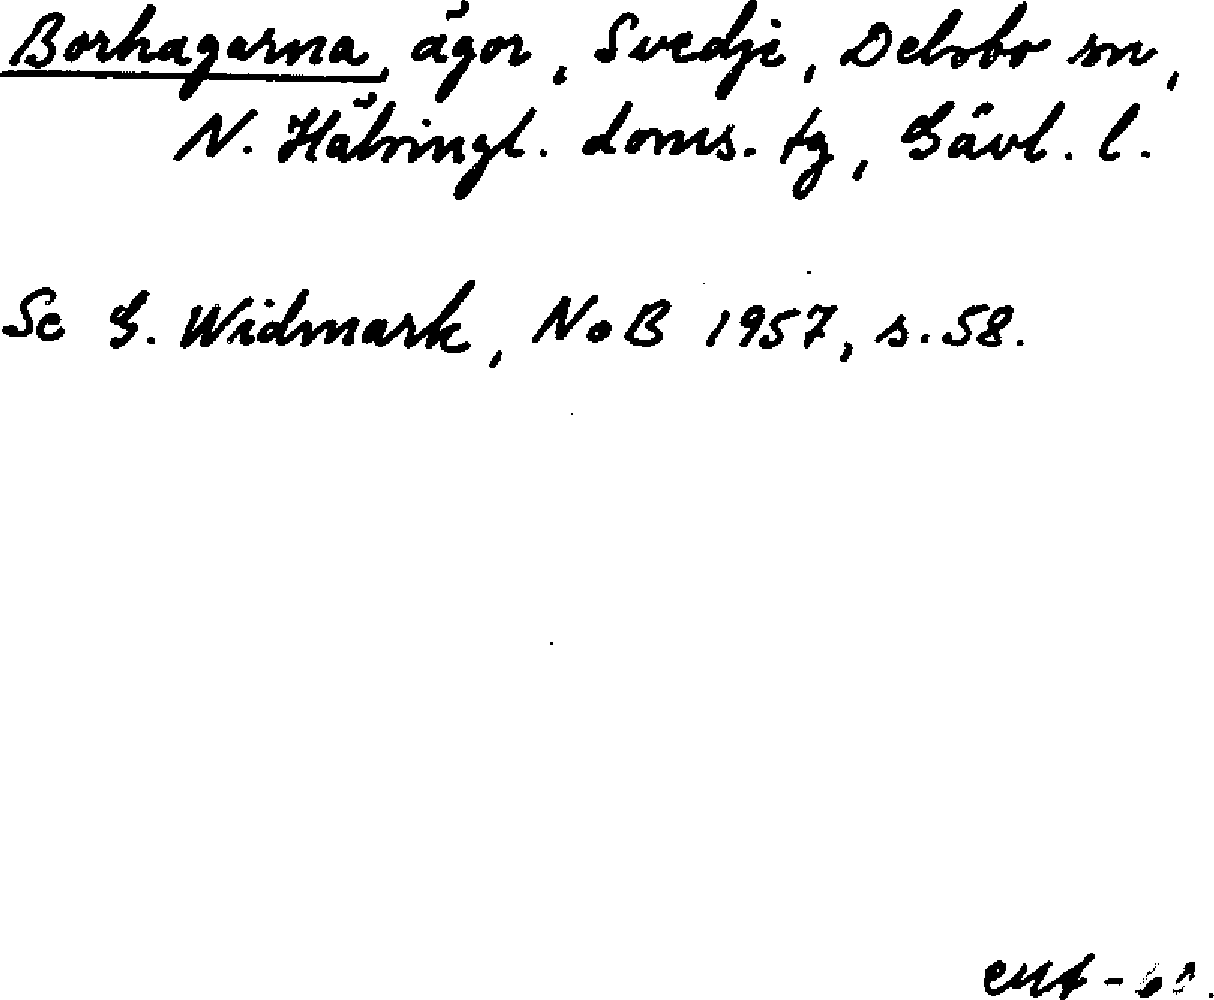 Borhagarna, ägor, Svedji, Delsbo sn,
N. Hälsingl. doms. tg, Gävl. l.
Se G. Widmark, NoB 1957, s. 58.